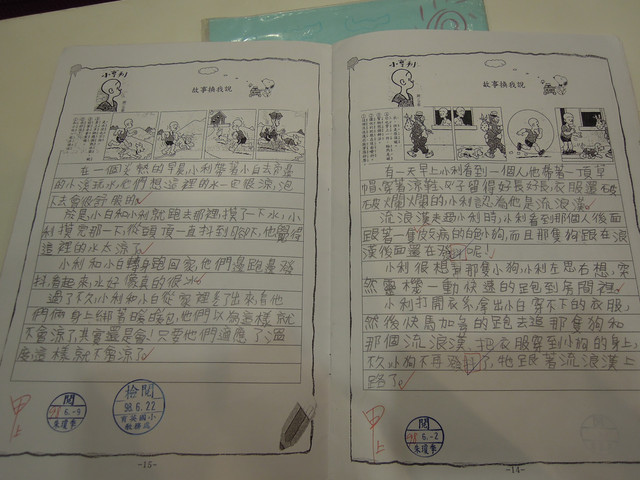 小亨利
故事換我說
在一個炎熱的早晨,小利帶著小白去旁邊
的小溪玩水,他們想這裡的水一定很涼,泡
下去會很舒服的。
於是小白和小利就跑去那裡,摸了一下水,小
利摸完那一下,從頭頂一直抖到腳下,他覺得
這裡的水太涼了。
小利和小白轉身跑回家,他們邊跑邊發
抖,看起來,水好像真的很冰。
過了不久,小利和小白從家裡走了出來,看他
們倆身上綁著暖暖包,他們以為這樣就
不會涼了,其實還是會!只要他們適應了溫
度這樣就不會涼了。
甲上
閱
98 6.-9
朱瓊
檢閱
98.6.22
國小
教務處
-15-
小亨利
故事換我說
有一天早上小利看到一個人他帶著一頂草
帽,穿著涼鞋,鬍子留得好長好長,衣服還破
破爛爛的,小利認為他是流浪漢。
流浪漢走過小利時,小利看到那個人後面
跟著一隻皮包骨的小狗,而且那隻狗跟在流
浪漢後面還在發抖呢!
小利很想幫那隻小狗,小利左思右想,突
然靈機一動快速的跑到房間裡
小利打開衣櫃,拿出小白穿不下的衣服,
然後快馬加鞭的跑去追那隻狗和
那個流浪漢,把衣服穿到小狗的身上,
不久小狗不再發抖了,牠跟著流浪漢上
路了。
甲上
閱
98 6.-2
朱瓊
-14-